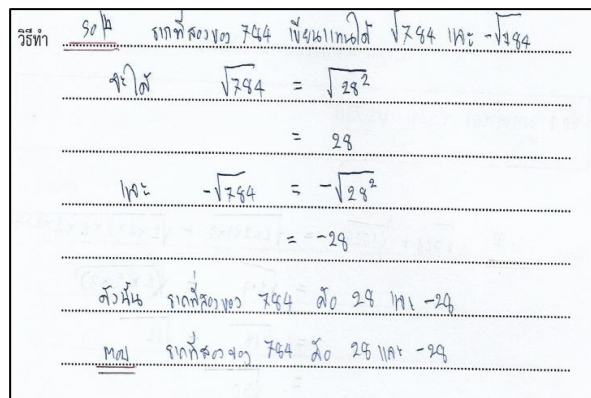 วิธีทำ Soln รากที่สองของ 784 เขียนแทนได้ √784 และ -√784
จะได้ √784 = √28²
= 28
และ -√784 = -√28²
= -28
ดังนั้น รากที่สองของ 784 คือ 28 และ -28
ตอบ รากที่สองของ 784 คือ 28 และ -28